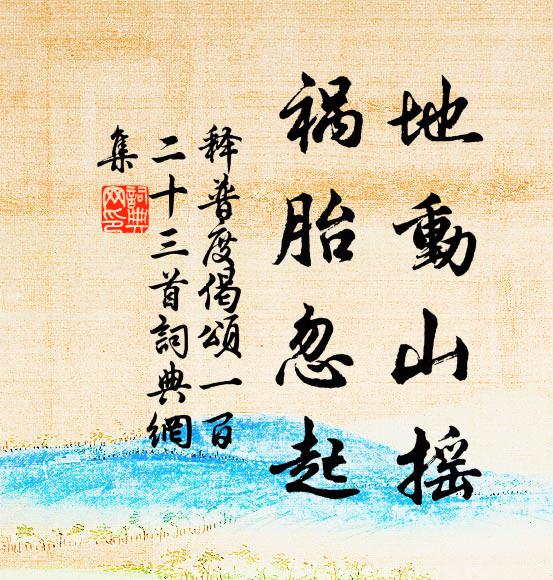 地動山摇
禍胎忽起
释普度偈頌一百
二十三首詞典網
集
詞典
网印